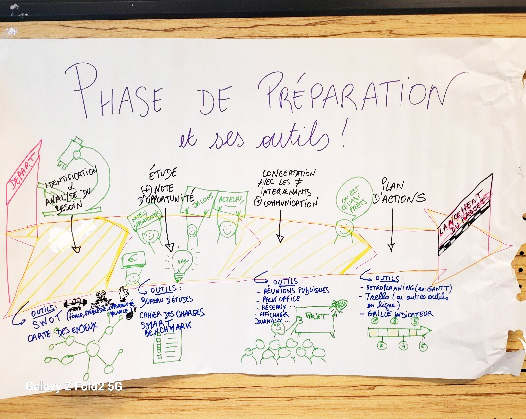 PHASE DE PRÉPARATION
et ses outils !
DÉPART
IDENTIFICATION
ANALYSE DU
BESOIN
ÉTUDE
(+) NOTE
D'OPPORTUNITÉ
ACTEURS
CONCERTATION
AVEC LES ≠
INTERVENANTS
COMMUNICATION
PLAN
D'ACTIONS
LANCEMENT
DU PROJET
OUTILS
SWOT
CARTE DES ENJEUX
OUTILS
BUREAU D'ÉTUDES
CAHIER DES CHARGES
SMART
BENCHMARK
OUTILS
- RÉUNIONS PUBLIQUES
- RÉSEAUX
- AFFICHAGE
PROJET
OUTILS
- RETROPLANNING (ex GANTT)
- Trello (ou autres outils
en ligne)
- GRILLE INDICATEUR
Galaxy Z Fold2 5G